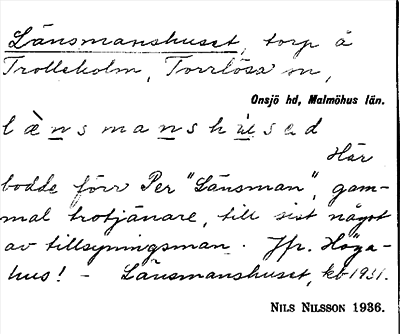 Länsmanshuset, torp å
Trolleholm, Torrlösa sn,
Onsjö hd, Malmöhus län.
lä̀nsmanshùsəd
Här
bodde förr Per "Länsman", gam-
mal trotjänare, till sist något
av tillsyningsman. Jfr. Höga-
hus! - Länsmanshuset, kb 1931.
NILS NILSSON 1936.